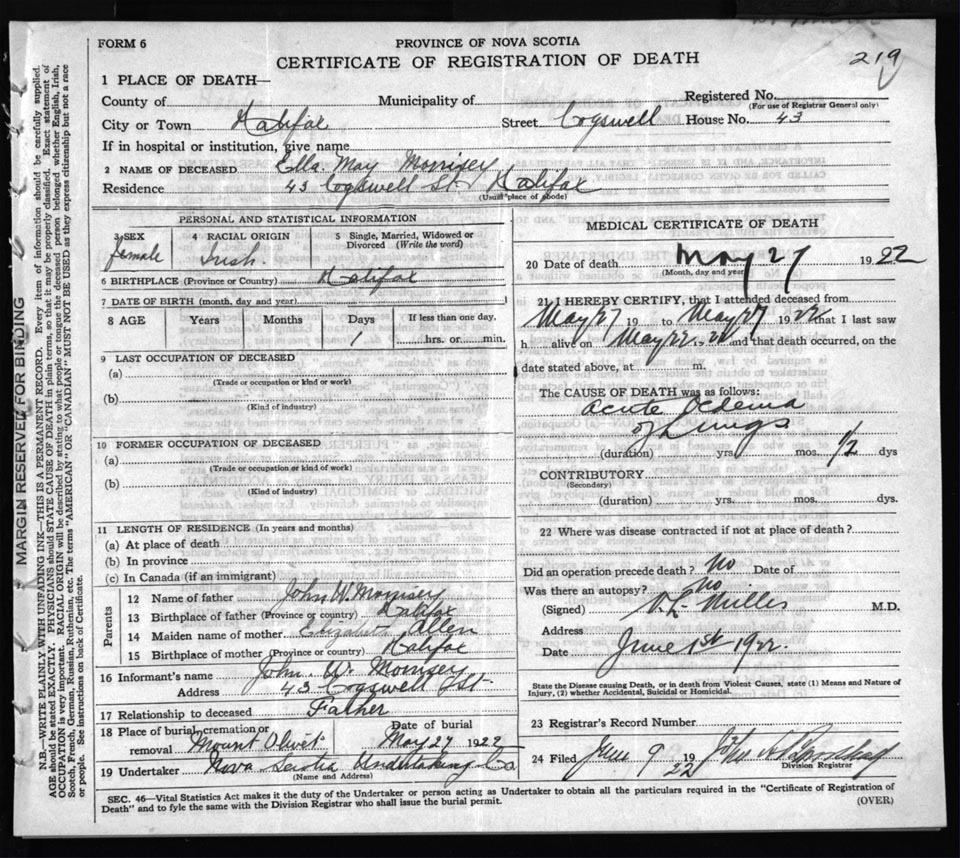 FORM 6
PROVINCE OF NOVA SCOTIA
CERTIFICATE OF REGISTRATION OF DEATH
219
1 PLACE OF DEATH—
County of Municipality of Registered No.
(For use of Registrar General only)
City or Town Halifax Street Cogswell House No. 43
If in hospital or institution, give name
2 NAME OF DECEASED Ella May Morrisey
Residence 43 Cogswell St Halifax
(Usual place of abode)
PERSONAL AND STATISTICAL INFORMATION
3 SEX 4 RACIAL ORIGIN 5 Single, Married, Widowed or Divorced (Write the word)
female Irish.
6 BIRTHPLACE (Province or Country) Halifax
7 DATE OF BIRTH (month, day and year)
8 AGE Years Months Days If less than one day,
1 hrs. or min.
9 LAST OCCUPATION OF DECEASED
(a)
(Trade or occupation or kind or work)
(b)
(Kind of industry)
10 FORMER OCCUPATION OF DECEASED
(a)
(Trade or occupation or kind or work)
(b)
(Kind of industry)
11 LENGTH OF RESIDENCE (In years and months)
(a) At place of death
(b) In province
(c) In Canada (if an immigrant)
Parents
12 Name of father John W. Morrisey
13 Birthplace of father (Province or country) Halifax
14 Maiden name of mother Elizabeth Allen
15 Birthplace of mother (Province or country) Halifax
16 Informant's name John W. Morrisey
Address 43 Cogswell St
17 Relationship to deceased Father
18 Place of burial, cremation or removal Mount Olivet Date of burial May 27 1922
19 Undertaker Nova Scotia Undertaking Co
(Name and Address)
MEDICAL CERTIFICATE OF DEATH
20 Date of death May 27 1922
(Month, day and year)
21 I HEREBY CERTIFY, that I attended deceased from
May 27 19 to May 27 1922 that I last saw
h alive on May 22. 22 and that death occurred, on the
date stated above, at m.
The CAUSE OF DEATH was as follows:
Acute Oedema
of Lungs
(duration) yrs. mos. 1/2 dys
CONTRIBUTORY
(Secondary)
(duration) yrs. mos. dys.
22 Where was disease contracted if not at place of death?
Did an operation precede death? no Date of
Was there an autopsy? no
(Signed) Miller M.D.
Address
Date June 1st 1922.
State the Disease causing Death, or in death from Violent Causes, state (1) Means and Nature of
Injury, (2) whether Accidental, Suicidal or Homicidal.
23 Registrar's Record Number
24 Filed June 9 1922
Division Registrar
SEC. 46—Vital Statistics Act makes it the duty of the Undertaker or person acting as Undertaker to obtain all the particulars required in the "Certificate of Registration of
Death" and to fyle the same with the Division Registrar who shall issue the burial permit.
(OVER)
MARGIN RESERVED FOR BINDING
N.B.—WRITE PLAINLY WITH UNFADING INK—THIS IS A PERMANENT RECORD. Every item of information should be carefully supplied.
AGE should be stated EXACTLY. PHYSICIANS should STATE CAUSE OF DEATH in plain terms, so that it may be properly classified. Exact statement of
OCCUPATION is very important. RACIAL ORIGIN will be described by stating to what people or tongue the deceased person belonged whether English, Irish,
Scotch, French, German, Russian, Ruthenian, etc. The terms "AMERICAN" or "CANADIAN" MUST NOT BE USED as they express citizenship but not a race
or people. See instructions on back of Certificate.